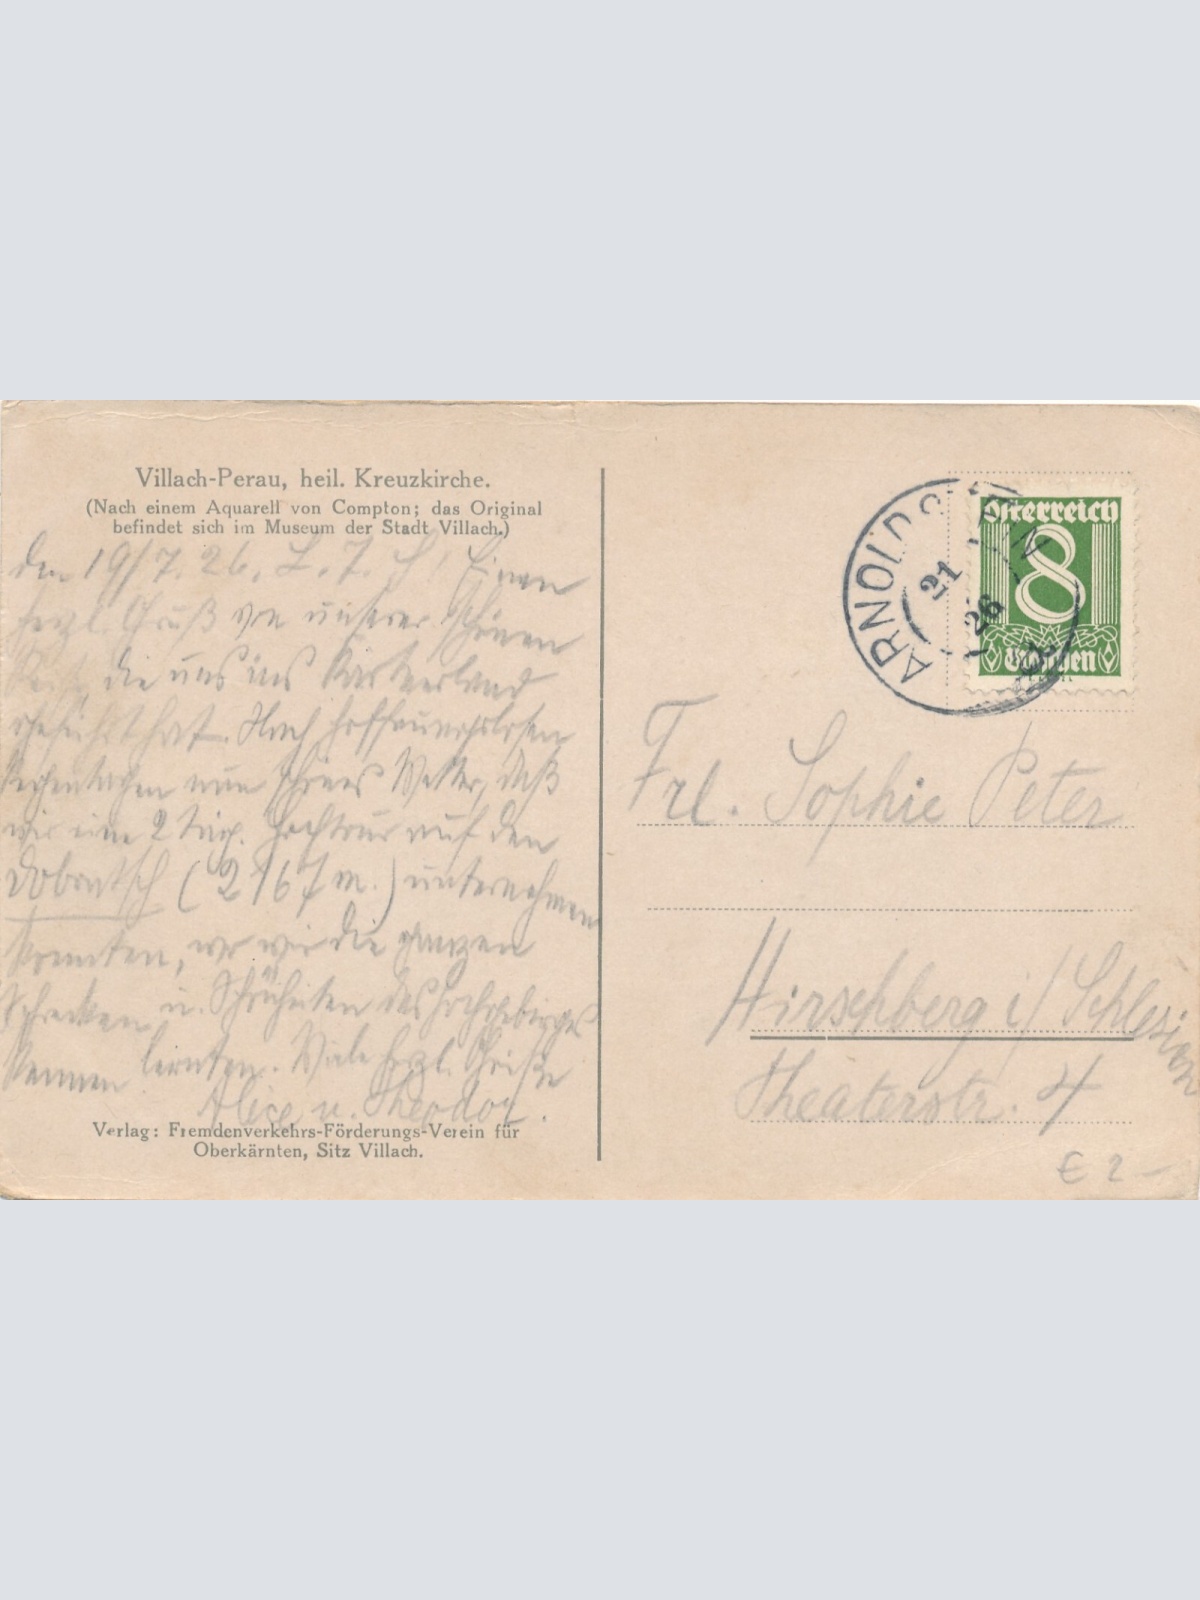 Villach-Perau, heil. Kreuzkirche.
(Nach einem Aquarell von Compton; das Original
befindet sich im Museum der Stadt Villach.)
den 19/7. 26. L. T. S! Einen
herzl. Gruß von unserer schönen
Reise, die uns ins Kärtnerland
geführt hat. Nach hoffnungslosen
Regentagen nun schönes Wetter, daß
wir eine 2 täg. Hochtour auf den
Dobratsch (2167 m.) unternehmen
konnten, wo wir die ganzen
Schrecken u. Schönheiten des Hochgebirges
kennen lernten. Viele herzl. Grüße
Alice u. Theodor.
Verlag: Fremdenverkehrs-Förderungs-Verein für
Oberkärnten, Sitz Villach.
ARNOLDSTEIN
21
26
Österreich
8
Groschen
Frl. Sophie Peter
Hirschberg i/Schlesien
Theaterstr. 4
€ 2-